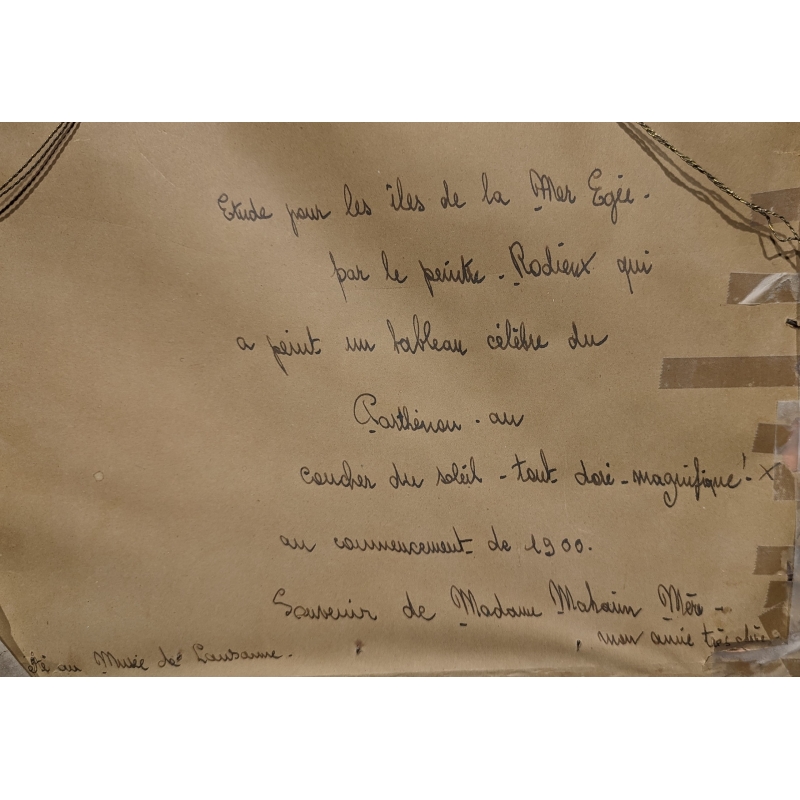 Etude pour les îles de la Mer Egée.
par le peintre - Rodieux qui
a peint un tableau célèbre du
Parthénon - au
coucher du soleil - tout doré - magnifique! - x
au commencement de 1900.
Souvenir de Madame Mahaim Mère -
mon amie très chère
au Musée de Lausanne.